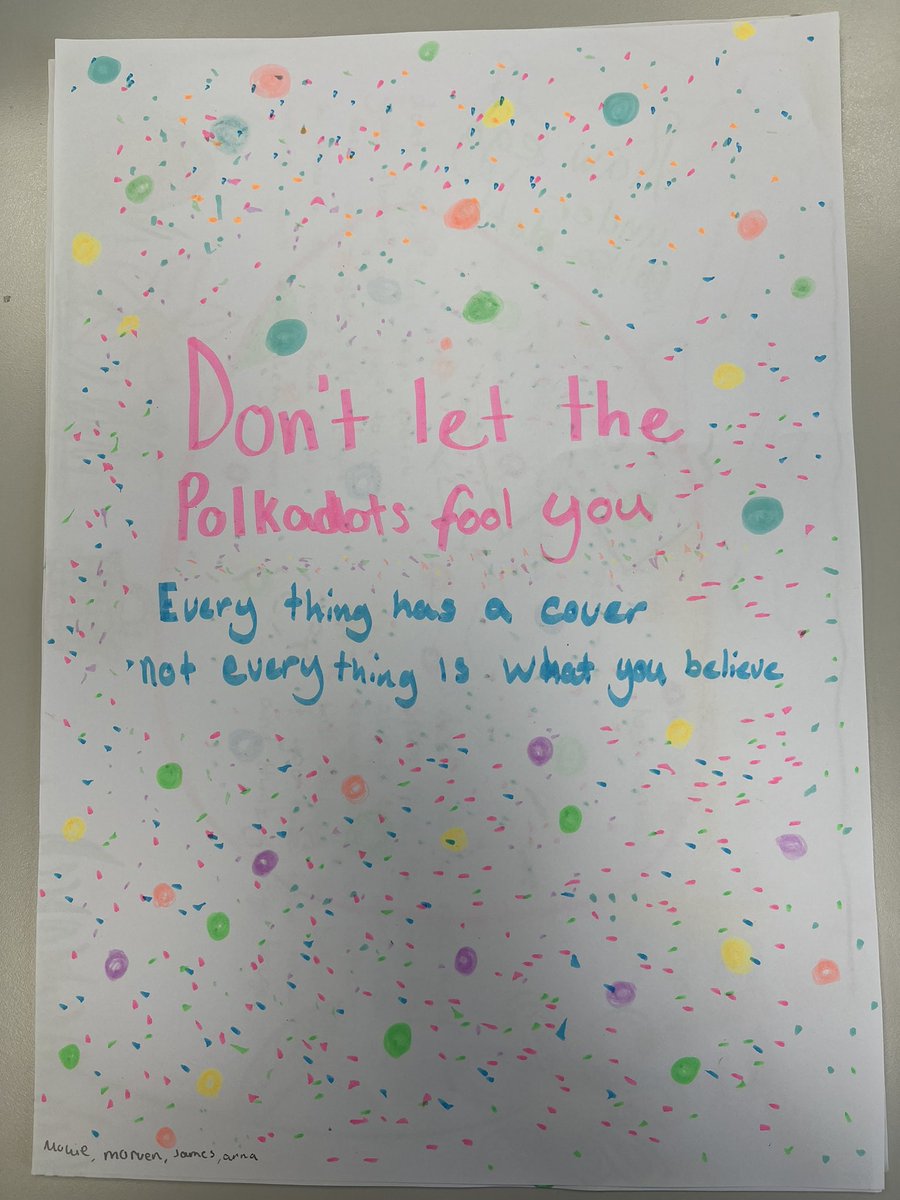 Don't let the
Polkadots fool you
Every thing has a cover
not every thing is what you believe
Mollie, morven, James, anna